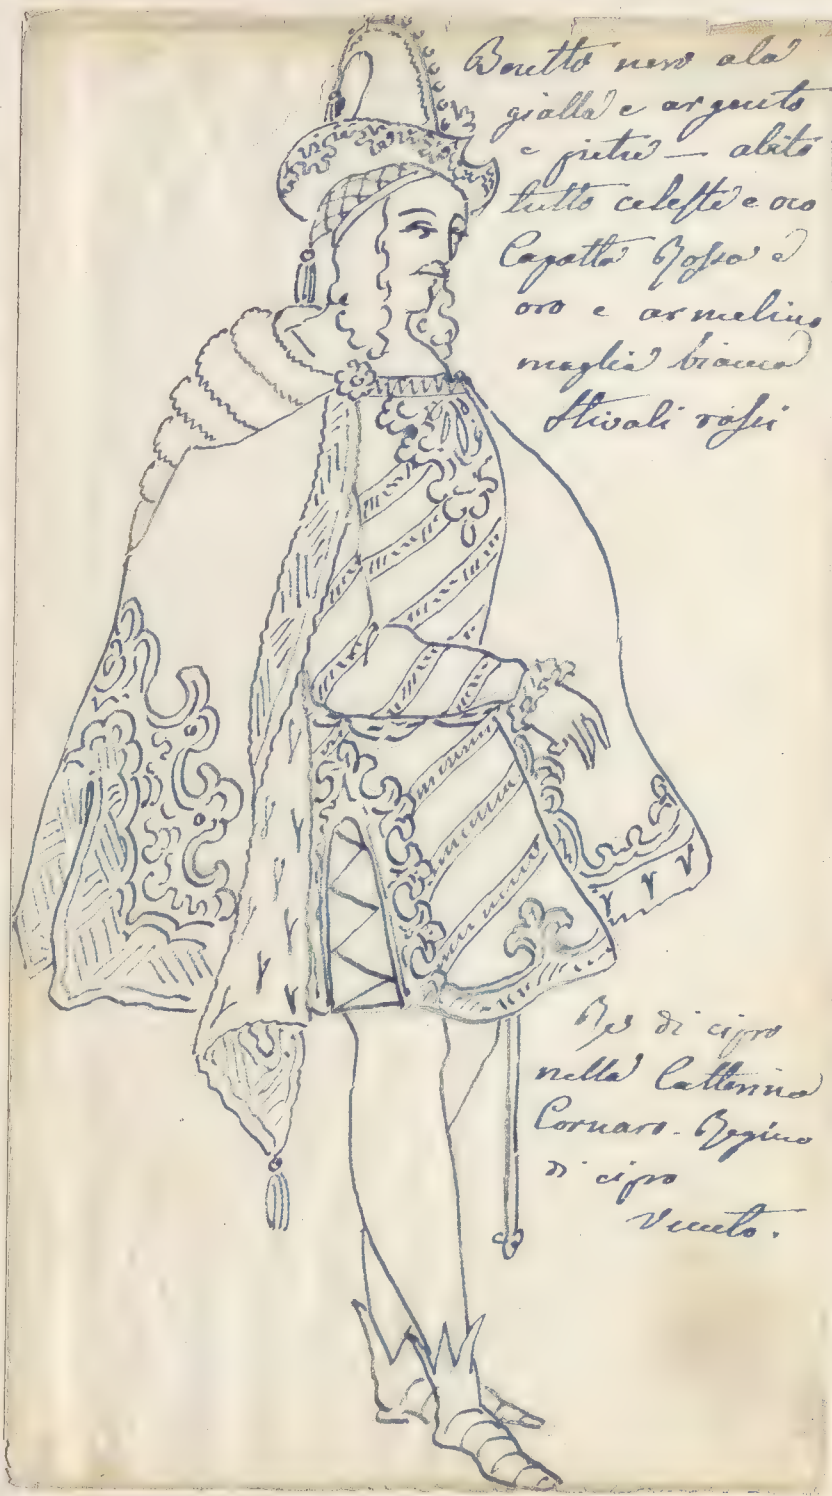 Beretto nero ala
gialla e argento
e pietre — abito
tutto celeste e oro
Capotta Rossa e
oro e armelino
maglia bianca
Stivali rossi
Re di cipro
nella Catterina
Cornaro. Regina
di cipro
Veneto.